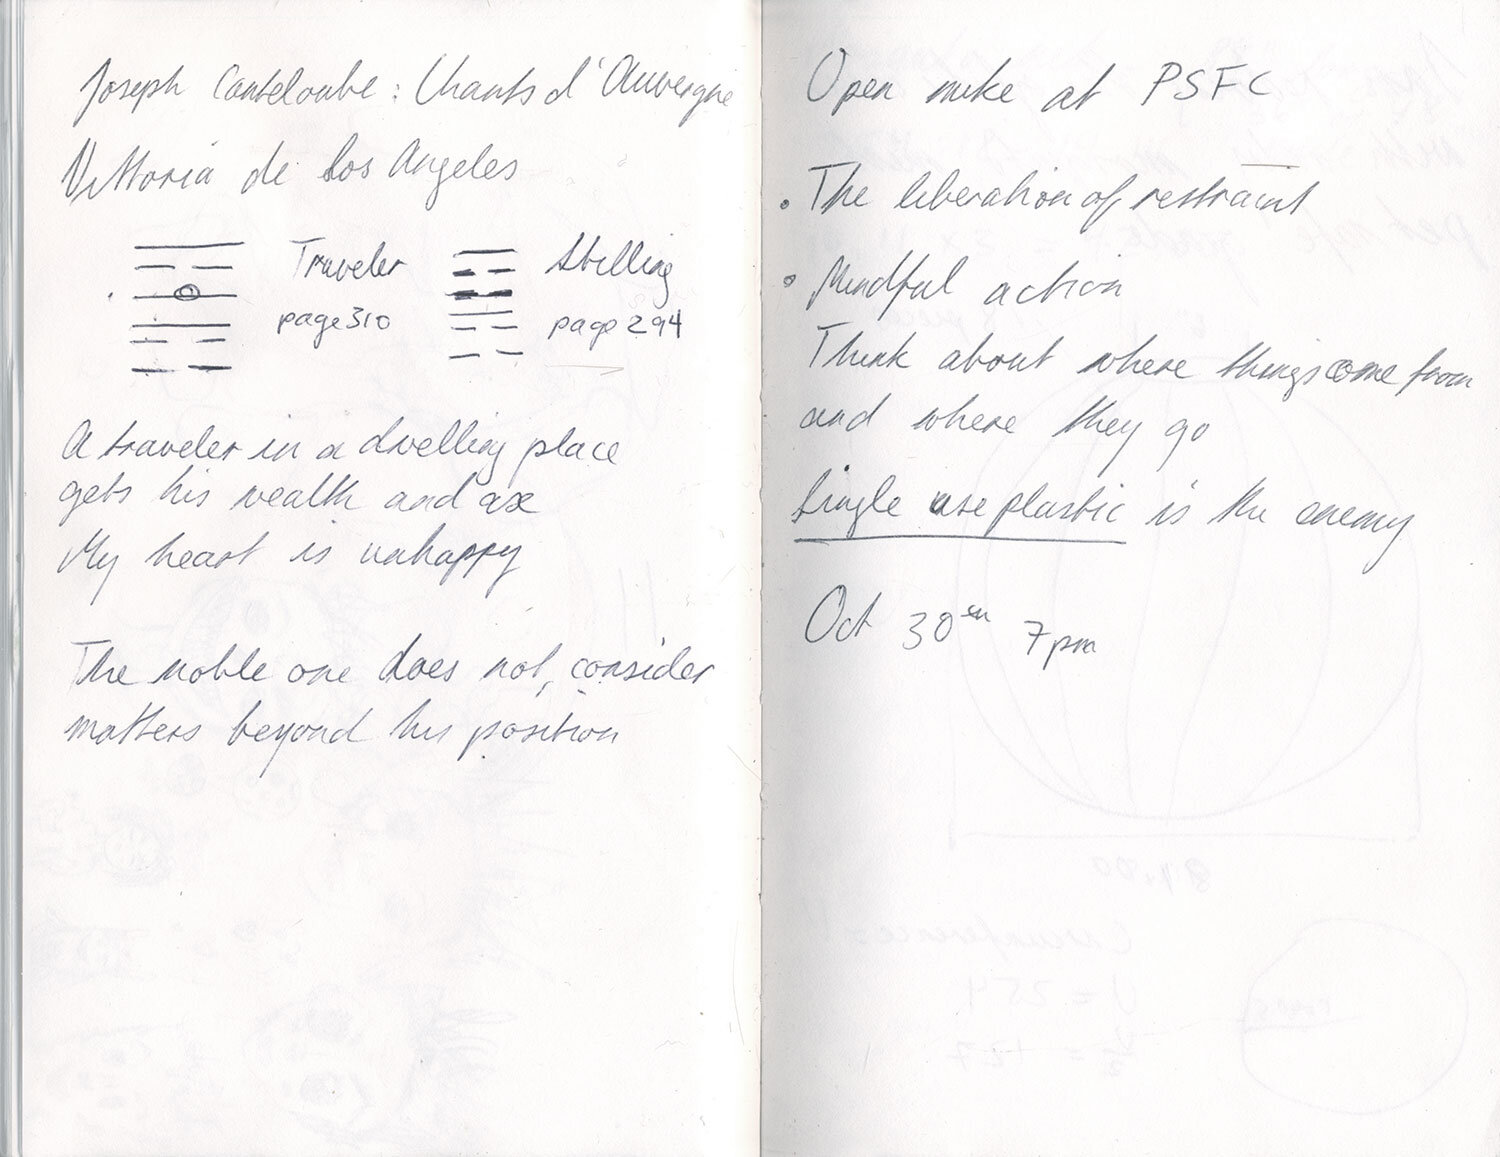 Joseph Canteloube: Chants d'Auvergne
Vittoria de los Angeles
Traveler
page 310
Stilling
page 294
A traveler in a dwelling place
gets his wealth and axe
My heart is unhappy
The noble one does not, consider
matters beyond his position
Open mike at PSFC
• The liberation of restraint
• Mindful action
Think about where things come from
and where they go
Single use plastic is the enemy
Oct 30th 7pm